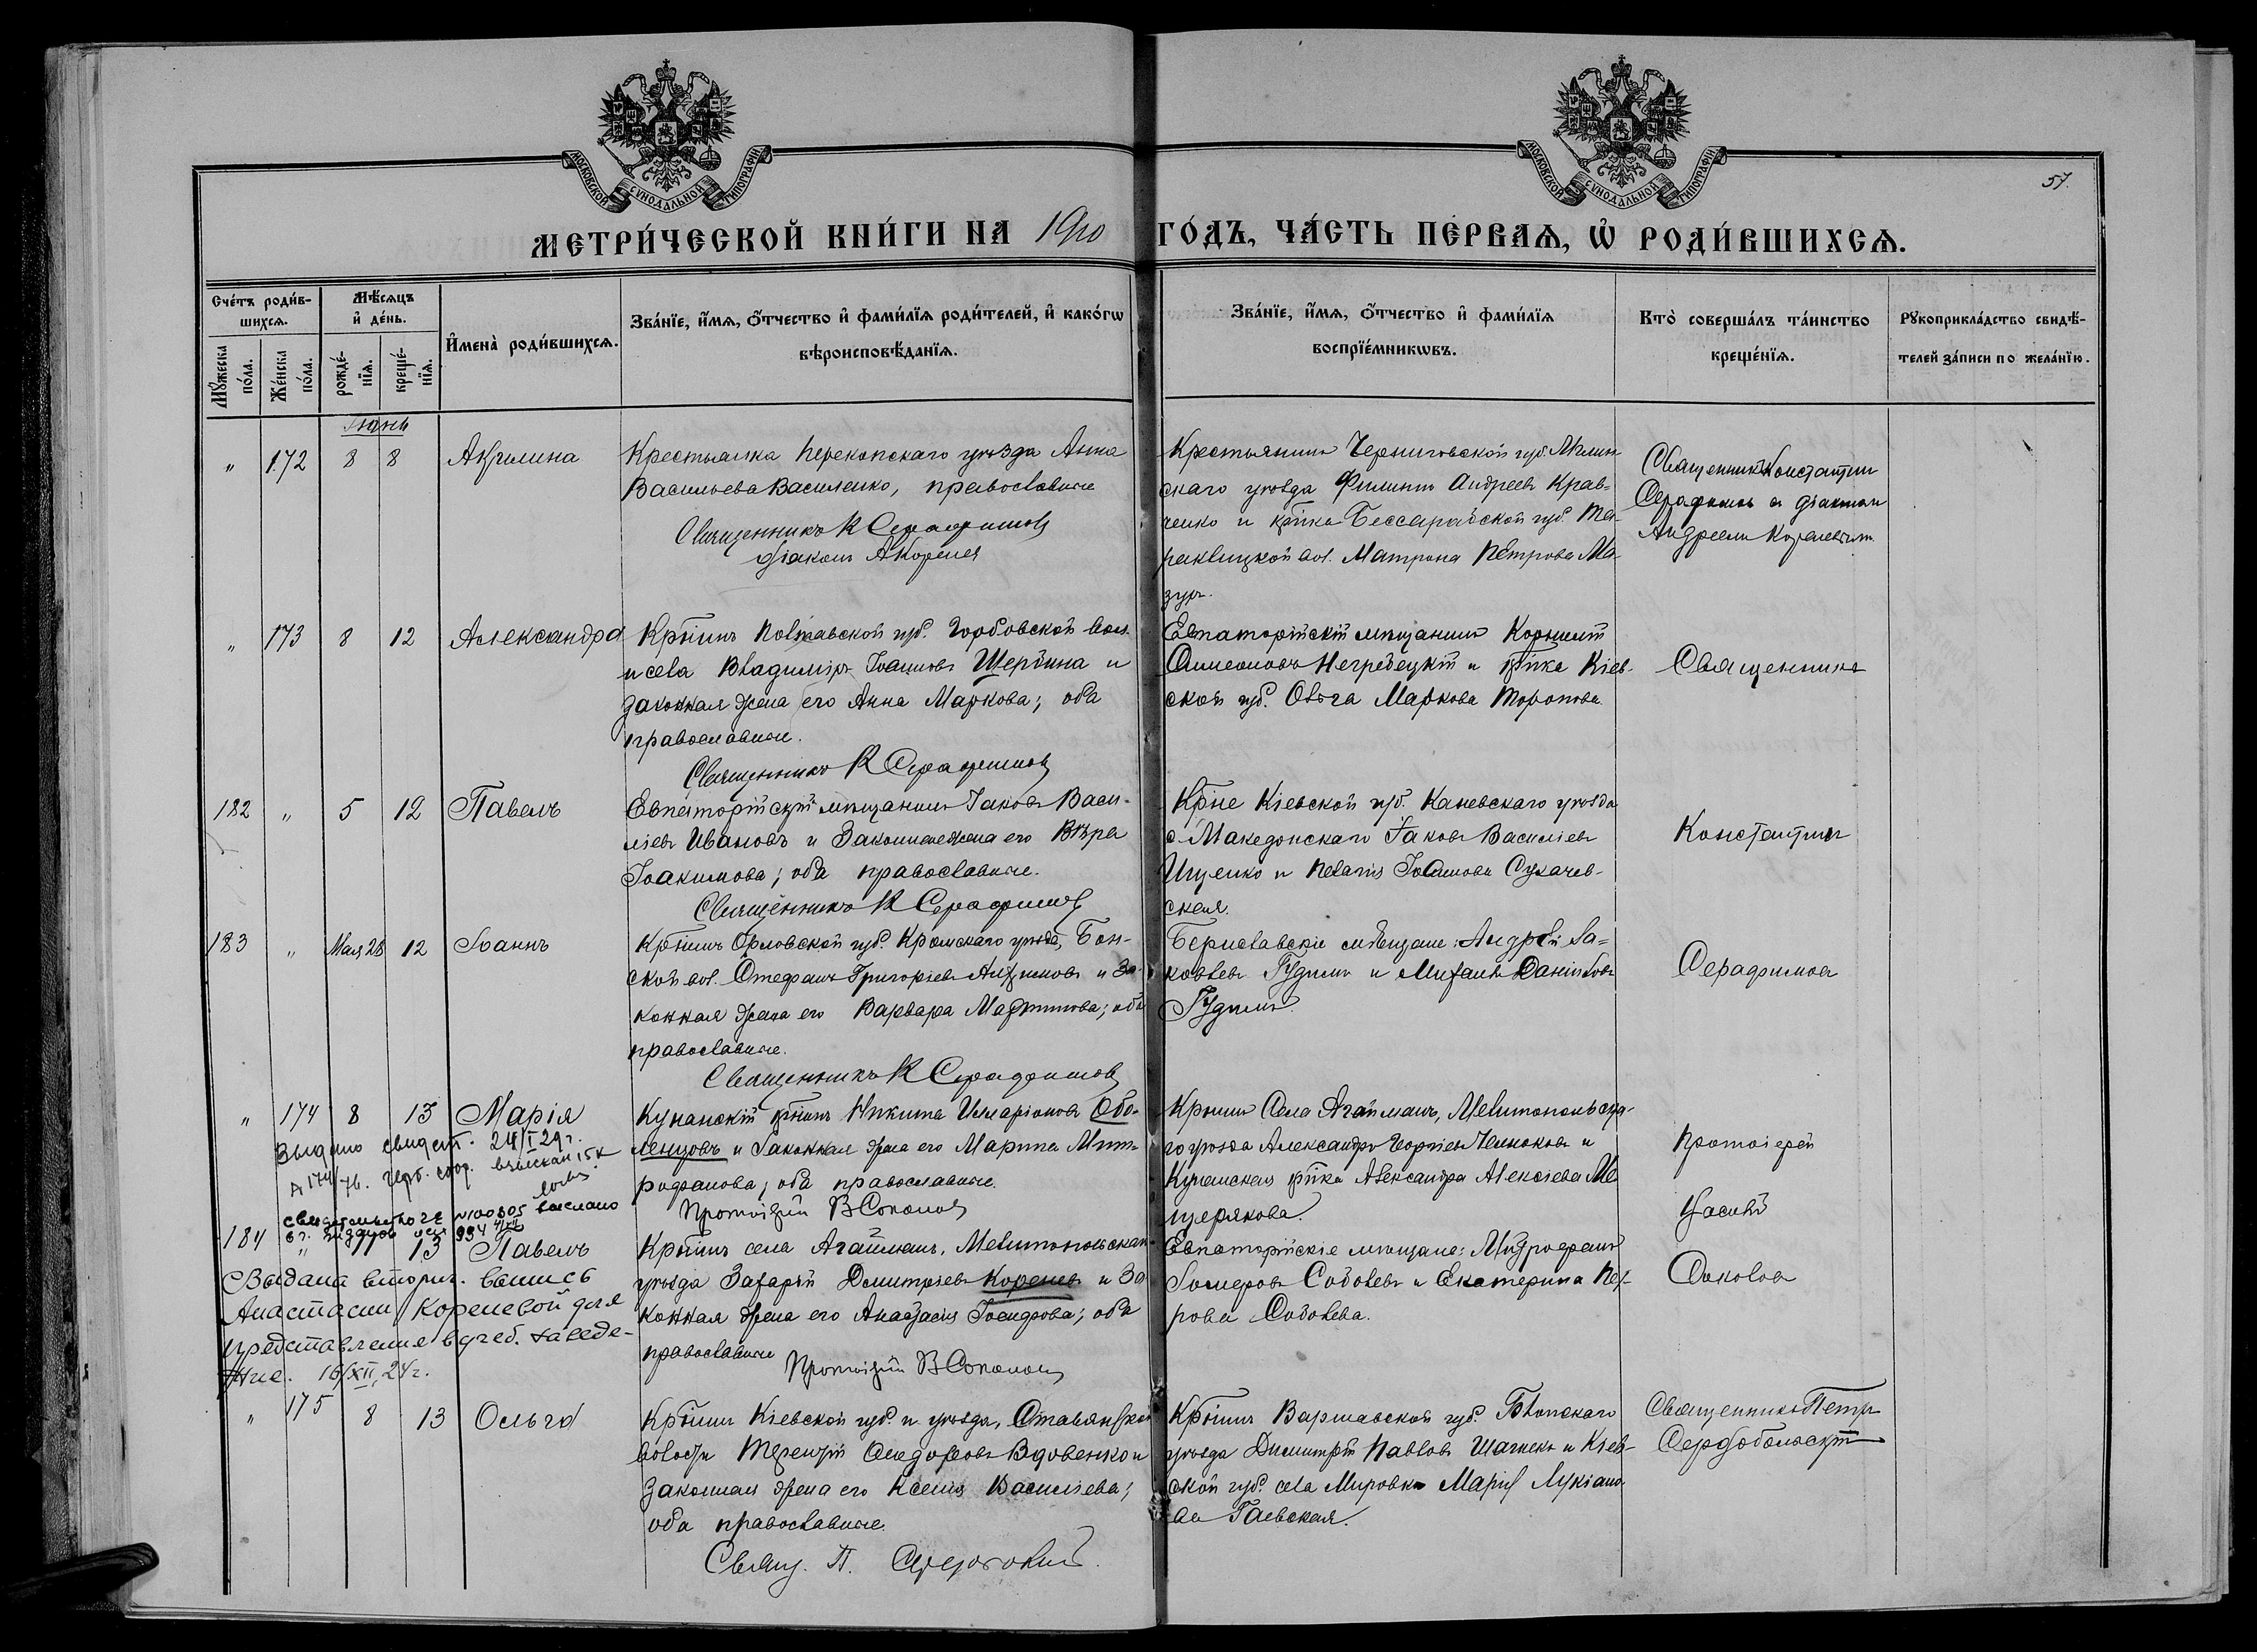 МОСКОВСКОЙ СУНОДАЛЬНОЙ ТИПОГРАФІИ
МОСКОВСКОЙ СУНОДАЛЬНОЙ ТИПОГРАФІИ
57.
МЕТРИ́ЧЕСКОЙ КНИ́ГИ НА 1910 ГО́ДЪ, ЧА́СТЬ ПЕ́РВАѦ, Ѡ҆ РОДИ́ВШИХСѦ.
Сче́тъ роди́в-
шихсѧ.
Мꙋ́жеска по́ла.
Же́нска по́ла.
Мѣ́сѧцъ
и҆ де́нь.
рожде́-нїѧ.
креще́-нїѧ.
И҆мена̀ роди́вшихсѧ.
Зва́нїе, и҆́мѧ, ѻ҆́тчество и҆ фами́лїѧ роди́телей, и҆ како́гѡ
вѣроисповѣ́данїѧ.
Зва́нїе, и҆́мѧ, ѻ҆́тчество и҆ фами́лїѧ
воспрїе́мникѡвъ.
Кто̀ соверша́лъ та́инство
креще́нїѧ.
Рꙋкоприкла́дство свидѣ́-
телей за́писи по жела́нїю.
Іюнь
" 172 8 8 Акилина
Крестьянка Перекопскаго уѣзда Анна
Васильева Василенко, православные
Священникъ К Серафимовъ
діаконъ А Корелевъ
Крестьянинъ Черниговской губ. Мглин
скаго уѣзда Филиппъ Андреевъ Крав=
ченко и кр̃нка Бессарабской губ.
вол. Матрона Петрова Ма-
зуръ.
Священникъ Константинъ
Серафимовъ съ діаконом
Андреем Корелевым.
" 173 8 12 Александра
Кр̃нинъ Полтавской губ. Горбовской вол.
и села Владиміръ Іоанновъ Щербина и
законная жена его Анна Маркова; оба
православные.
Священникъ К Серафимовъ
Евпаторійскій мѣщанинъ Корнилій
Симеоновъ Негребецкій и кр̃нка Кіев-
ской губ. Ольга Маркова Торопова
Священникъ
182 " 5 12 Павелъ
Евпаторійскій мѣщанинъ Іаковъ Васи-
ліевъ Ивановъ и Законная жена его Вѣра
Іоакимова; оба православные.
Священникъ К Серафимовъ
Кр̃не Кіевской губ. Каневскаго уѣзда
с. Македонскаго Іаковъ Василіевъ
Ищенко и Пелагія Іоаннова Сукачев-
ская.
Константинъ
183 " Мая 28 12 Іоаннъ
Кр̃нинъ Орловской губ. Кромскаго уѣзда, Бон-
ской вол. Стефанъ Григоріевъ и За-
конная жена его Варвара Мартинова; оба
православные.
Священникъ К Серафимовъ
Бериславскіе мѣщане: Андрей Іа=
ковлевъ Гудимъ и Михаилъ Даніиловъ
Гудимъ.
Серафимовъ
" 174 8 13 Марія
Выдано свидет. 24/I 29 г.
Кр̃нинъ Никита Иларіоновъ Обо-
ленцовъ и Законная жена его Марина Мит-
рофанова; оба православные.
Протоіерей В Соколовъ
Кр̃нинъ Села Агайманъ, Мелитопольска-
го уѣзда Александръ Георгіевъ Челноковъ и
кр̃нка Александра Алексіева Ме-
щерякова.
Протоіерей
Василій
184 " 13 Павелъ
Выдана вторич. выпись
Анастасии Кореневой для
представления в учеб. заведе-
ние. 16/XII, 24 г.
Кр̃нинъ села Агайманъ, Мелитопольскаго
уѣзда Захарій Димитріевъ Кореневъ и За-
конная жена его Анастасія Іосифова; оба
православные
Протоіерей В Соколовъ
Евпаторійскіе мѣщане: Митрофанъ
Іосифовъ Соболевъ и Екатерина Пет-
рова Соболева.
Соколовъ
" 175 8 13 Ольга
Кр̃нинъ Кіевской губ. и уѣзда, Ставянской
волости Терентій Ѳеодоровъ Вдовенко и
Законная жена его Ксенія Василіева;
оба православные.
Свящ. П.
Кр̃нинъ Варшавской губ. Блонскаго
уѣзда Димитрій Павловъ и Кіев-
ской губ. села Мировки Марія Лукіано-
ва Гаевская.
Священникъ Петръ
Сердобольскій